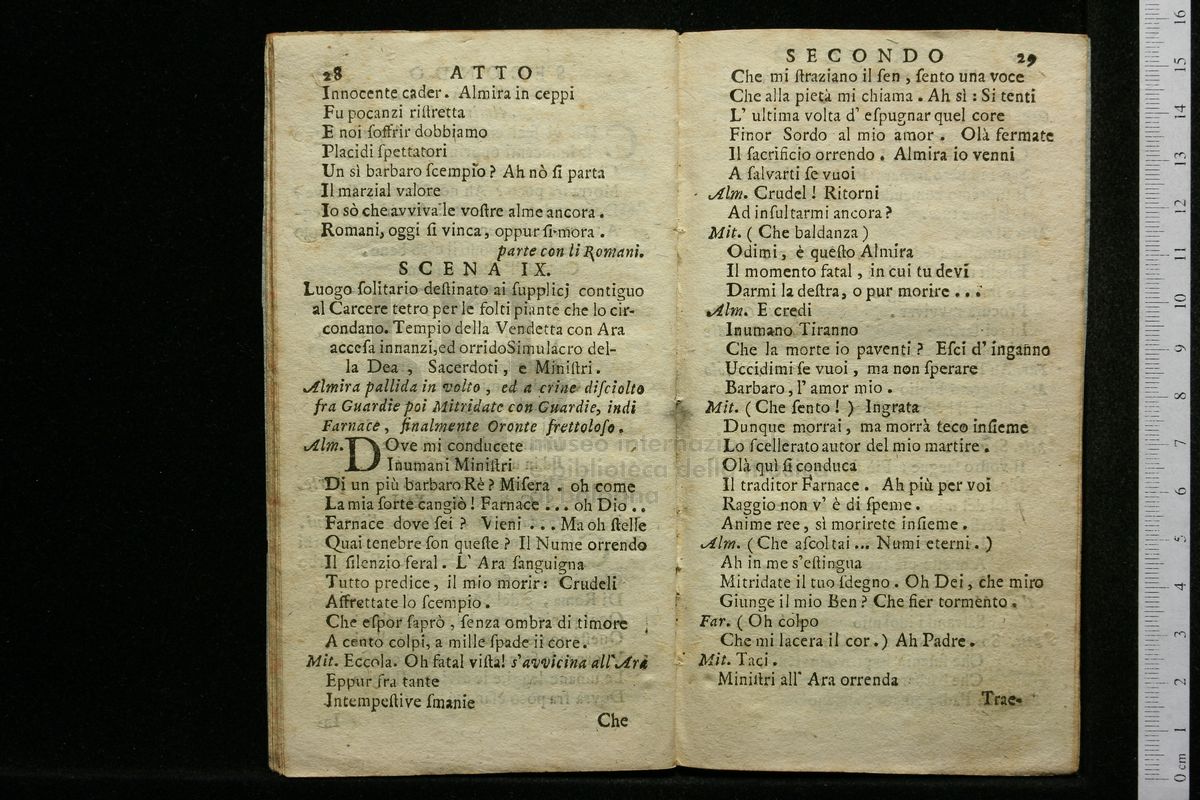 28 ATTO
Innocente cader. Almira in ceppi
Fu pocanzi riſtretta
E noi ſoffrir dobbiamo
Placidi ſpettatori
Un sì barbaro ſcempio? Ah nò ſi parta
Il marzial valore
Io sò che avviva le voſtre alme ancora.
Romani, oggi ſi vinca, oppur ſi mora.
parte con li Romani.
SCENA IX.
Luogo ſolitario deſtinato ai ſupplicj contiguo
al Carcere tetro per le folti piante che lo cir-
condano. Tempio della Vendetta con Ara
acceſa innanzi,ed orridoSimulacro del-
la Dea, Sacerdoti, e Miniſtri.
Almira pallida in volto, ed a crine diſciolto
fra Guardie poi Mitridate con Guardie, indi
Farnace, finalmente Oronte frettoloſo.
Alm. DOve mi conducete
Inumani Miniſtri
Di un più barbaro Rè? Miſera. oh come
La mia ſorte cangiò! Farnace... oh Dio..
Farnace dove ſei? Vieni... Ma oh ſtelle
Quai tenebre ſon queſte? Il Nume orrendo
Il ſilenzio feral. L' Ara ſanguigna
Tutto predice, il mio morir: Crudeli
Affrettate lo ſcempio.
Che eſpor ſaprò, ſenza ombra di timore
A cento colpi, a mille ſpade il core.
Mit. Eccola. Oh fatal viſta! s'avvicina all'Ara
Eppur fra tante
Intempeſtive ſmanie
Che
SECONDO 29
Che mi ſtraziano il ſen, ſento una voce
Che alla pietà mi chiama. Ah sì: Si tenti
L' ultima volta d' eſpugnar quel core
Finor Sordo al mio amor. Olà fermate
Il ſacrificio orrendo. Almira io venni
A ſalvarti ſe vuoi
Alm. Crudel! Ritorni
Ad inſultarmi ancora?
Mit. (Che baldanza)
Odimi, è queſto Almira
Il momento fatal, in cui tu devi
Darmi la deſtra, o pur morire...
Alm. E credi
Inumano Tiranno
Che la morte io paventi? Eſci d' inganno
Uccidimi ſe vuoi, ma non ſperare
Barbaro, l' amor mio.
Mit. (Che ſento!) Ingrata
Dunque morrai, ma morrà teco inſieme
Lo ſcellerato autor del mio martire.
Olà quì ſi conduca
Il traditor Farnace. Ah più per voi
Raggio non v' è di ſpeme.
Anime ree, sì morirete inſieme.
Alm. (Che aſcoltai... Numi eterni.)
Ah in me s'eſtingua
Mitridate il tuo ſdegno. Oh Dei, che miro
Giunge il mio Ben? Che fier tormento.
Far. (Oh colpo
Che mi lacera il cor.) Ah Padre.
Mit. Taci.
Miniſtri all' Ara orrenda
Trae-